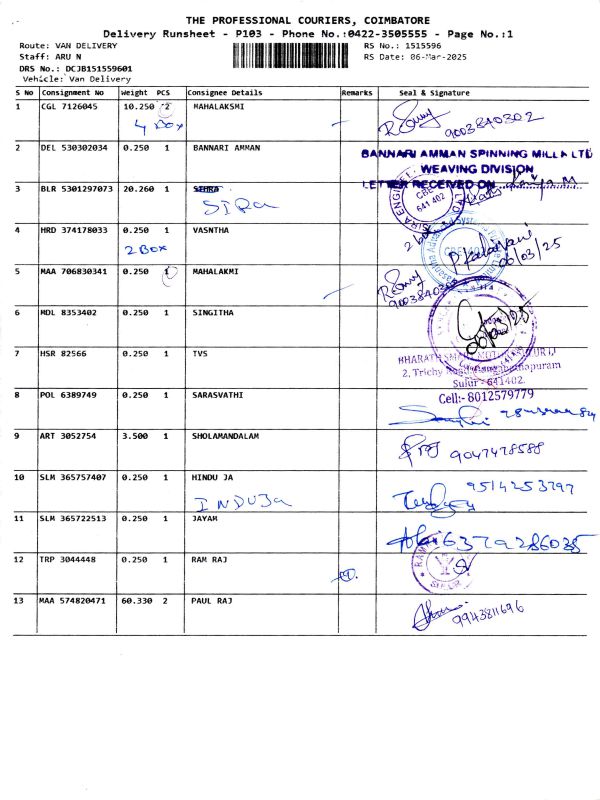 THE PROFESSIONAL COURIERS, COIMBATORE
Delivery Runsheet - P103 - Phone No.:0422-3505555 - Page No.:1
Route: VAN DELIVERY RS No.: 1515596
Staff: ARU N RS Date: 06-Mar-2025
DRS No.: DCJB151559601
Vehicle: Van Delivery
S No Consignment No Weight PCS Consignee Details Remarks Seal & Signature
1 CGL 7126045 10.250 2 MAHALAKSMI
4 Box 9003840302
2 DEL 530302034 0.250 1 BANNARI AMMAN
BANNARI AMMAN SPINNING MILLS LTD
WEAVING DIVISION
LETTER RECEIVED ON
3 BLR 5301297073 20.260 1 SEHRA
SIRA
641 402
4 HRD 374178033 0.250 1 VASNTHA
2 BOX
06/03/25
5 MAA 706830341 0.250 1 MAHALAKMI
9003840302
6 MDL 8353402 0.250 1 SINGITHA
7 HSR 82566 0.250 1 TVS
2, Trichy
Sulur - 641402.
Cell:- 8012579779
8 POL 6389749 0.250 1 SARASVATHI
9 ART 3052754 3.500 1 SHOLAMANDALAM
9047478588
10 SLM 365757407 0.250 1 HINDU JA
INDUJa
9514253797
11 SLM 365722513 0.250 1 JAYAM
6379286035
12 TRP 3044448 0.250 1 RAM RAJ
13 MAA 574820471 60.330 2 PAUL RAJ
9943811696